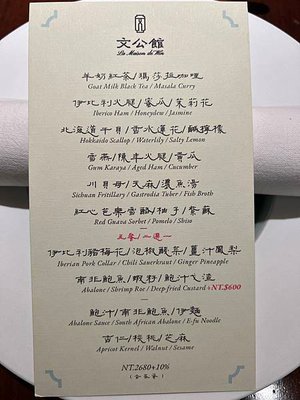 文公館
La Maison de Win
羊奶紅茶/瑪莎拉咖哩
Goat Milk Black Tea / Masala Curry
伊比利火腿/蜜瓜/茉莉花
Iberico Ham / Honeydew / Jasmine
北海道干貝/香水蓮花/鹹檸檬
Hokkaido Scallop / Waterlily / Salty Lemon
雪燕/陳年火腿/黃瓜
Gum Karaya / Aged Ham / Cucumber
川貝母/天麻/濃魚湯
Sichuan Fritillary / Gastrodia Tuber / Fish Broth
紅心芭樂雪酪/柚子/紫蘇
Red Guava Sorbet / Pomelo / Shiso
主餐/二選一
伊比利豬梅花/泡椒酸菜/薑汁鳳梨
Iberian Pork Collar / Chili Sauerkraut / Ginger Pineapple
南北鮑魚/蝦籽/鮑汁戈渣
Abalone / Shrimp Roe / Deep-fried Custard +NT.$600
鮑汁/南北鮑魚/伊麵
Abalone Sauce / South African Abalone / E-fu Noodle
杏仁/核桃/芝麻
Apricot Kernel / Walnut / Sesame
NT.2680+10%